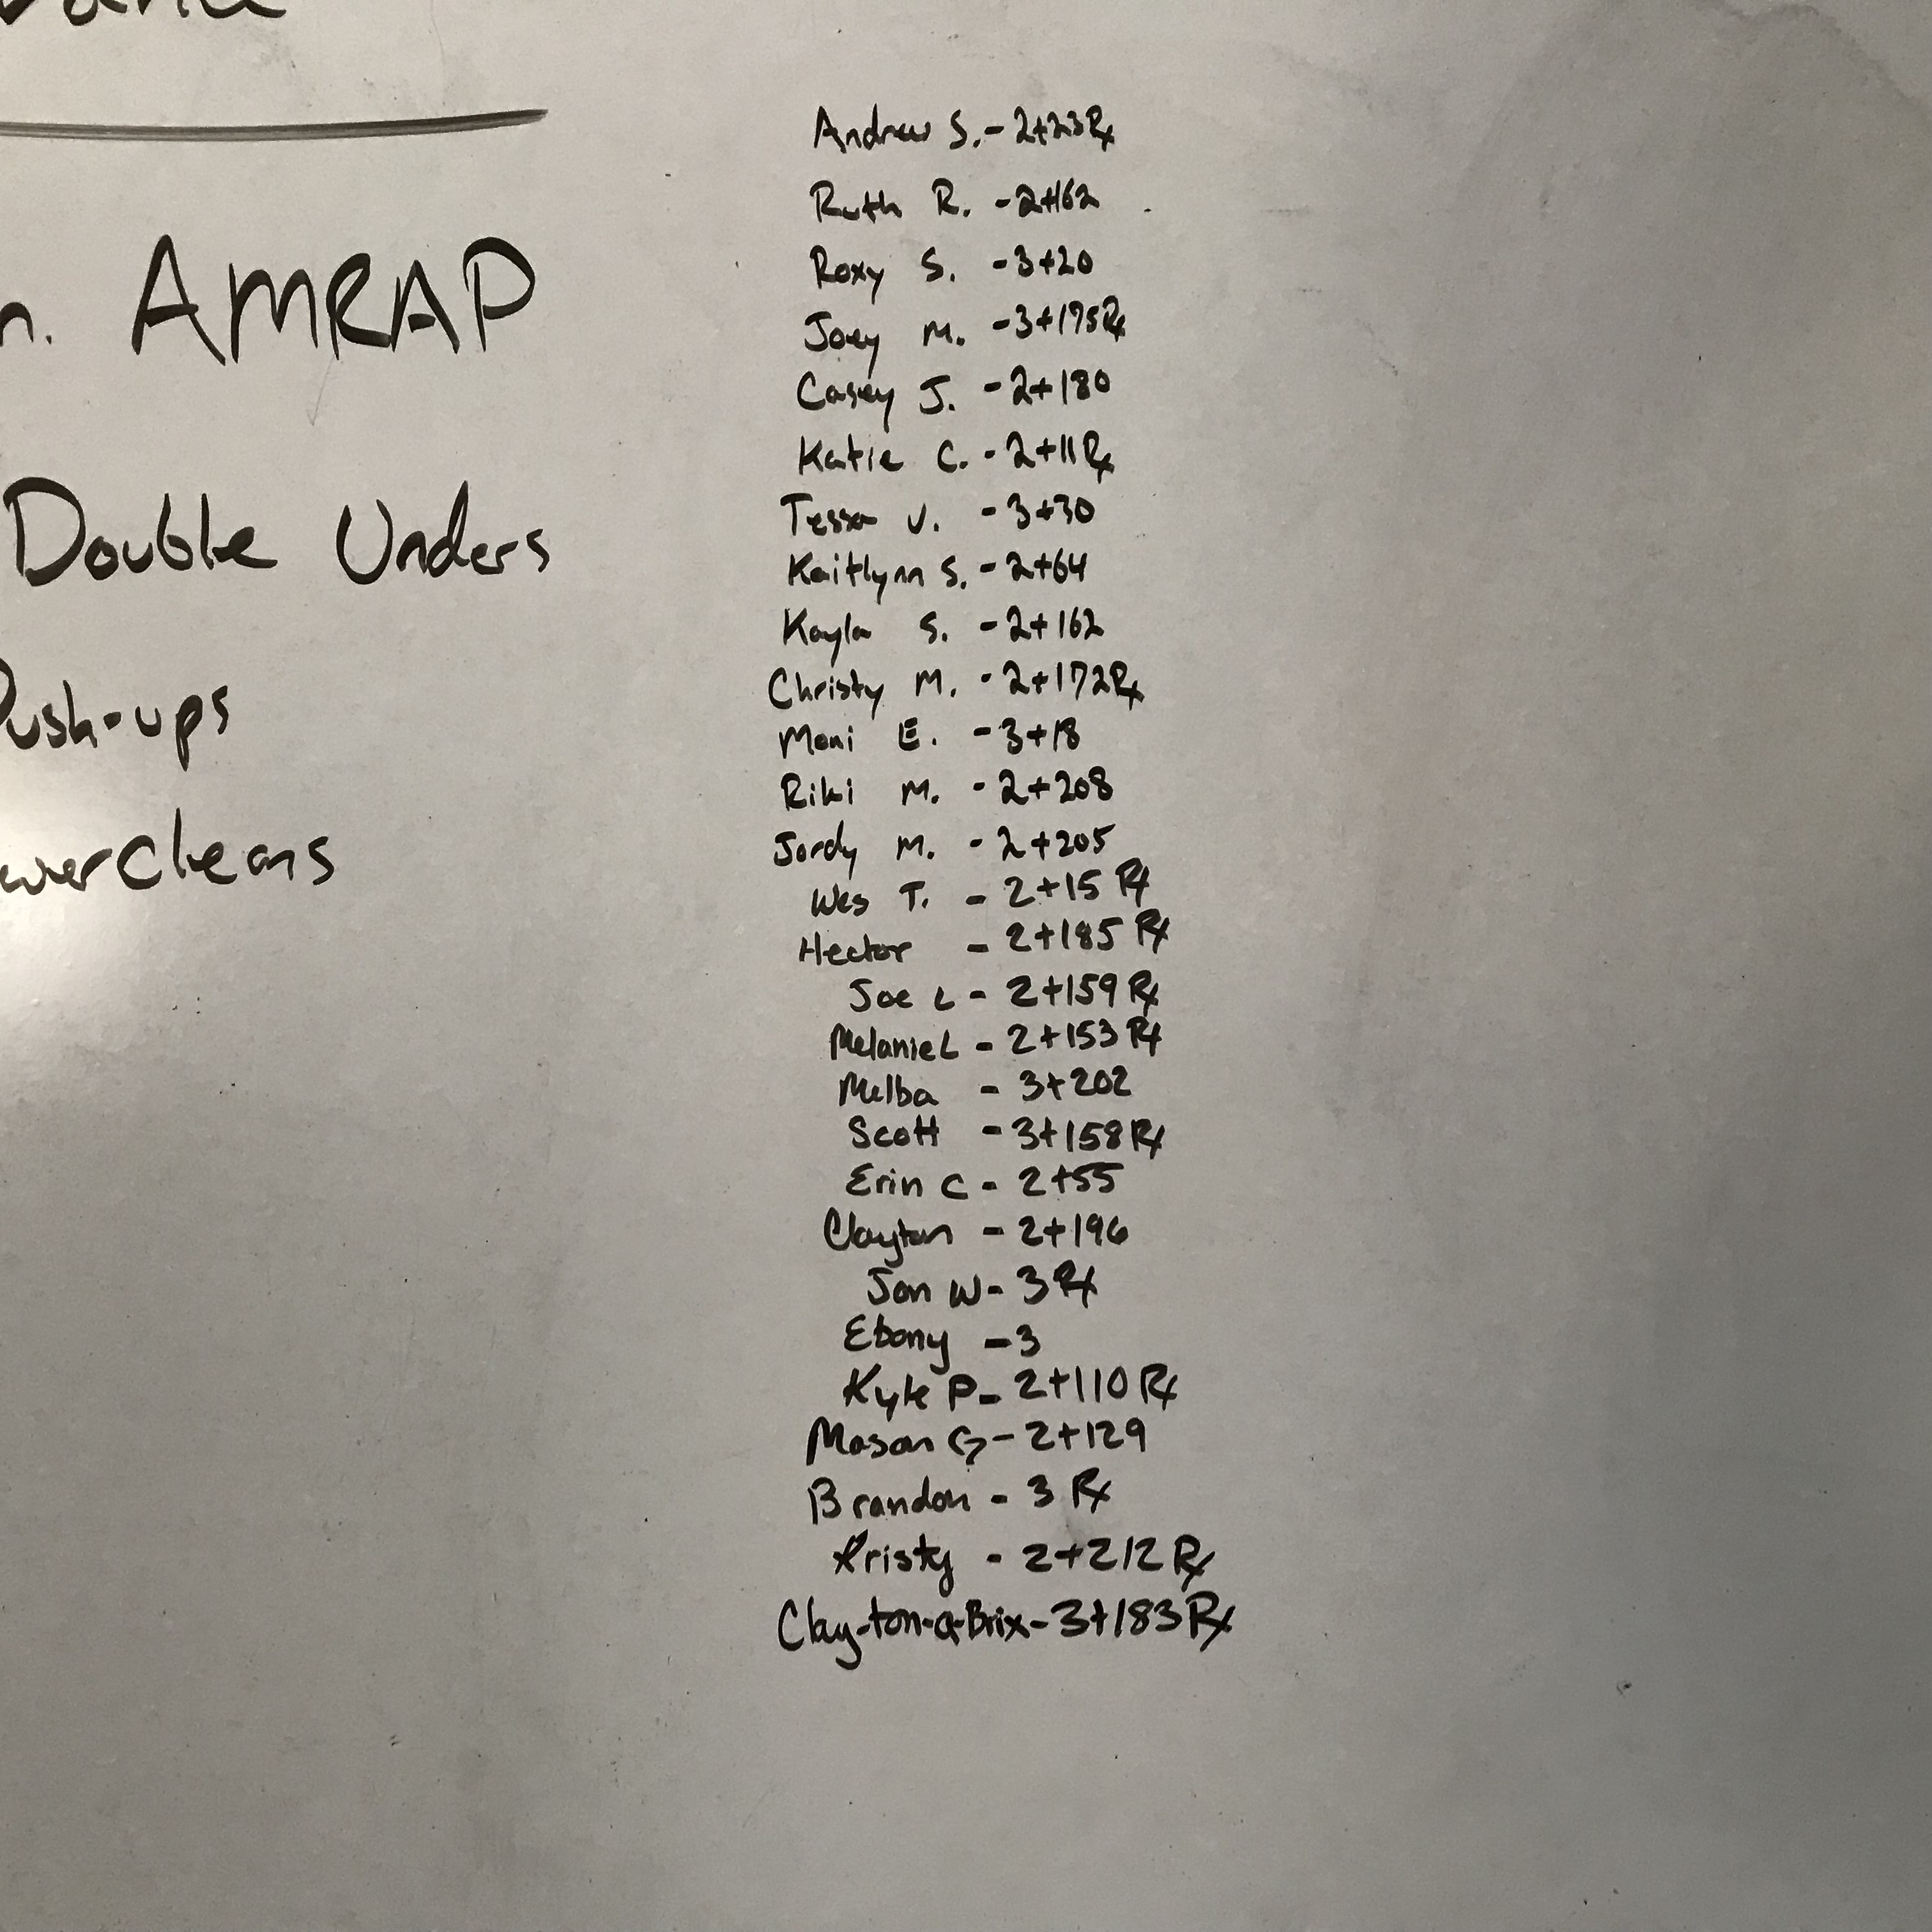 n. AMRAP
Double Unders
Push-ups
werCleans
Andrew S. - 2+23Rx
Ruth R. - 2+162
Roxy S. - 3+20
Joey M. - 3+175Rx
Casey J. - 2+180
Katie C. - 2+11Rx
Tessa V. - 3+30
Kaitlynn S. - 2+64
Kayla S. - 2+162
Christy M. - 2+172Rx
Moni E. - 3+18
Riki M. - 2+208
Jordy M. - 2+205
Wes T. - 2+15 Rx
Hector - 2+185 Rx
Joe L - 2+159 Rx
Melanie L - 2+153 Rx
Melba - 3+202
Scott - 3+158 Rx
Erin C - 2+55
Clayton - 2+196
Jon W - 3 Rx
Ebony - 3
Kyle P - 2+110 Rx
Mason G - 2+129
Brandon - 3 Rx
Kristy - 2+212 Rx
Clay-ton-a-Brix - 3+183 Rx